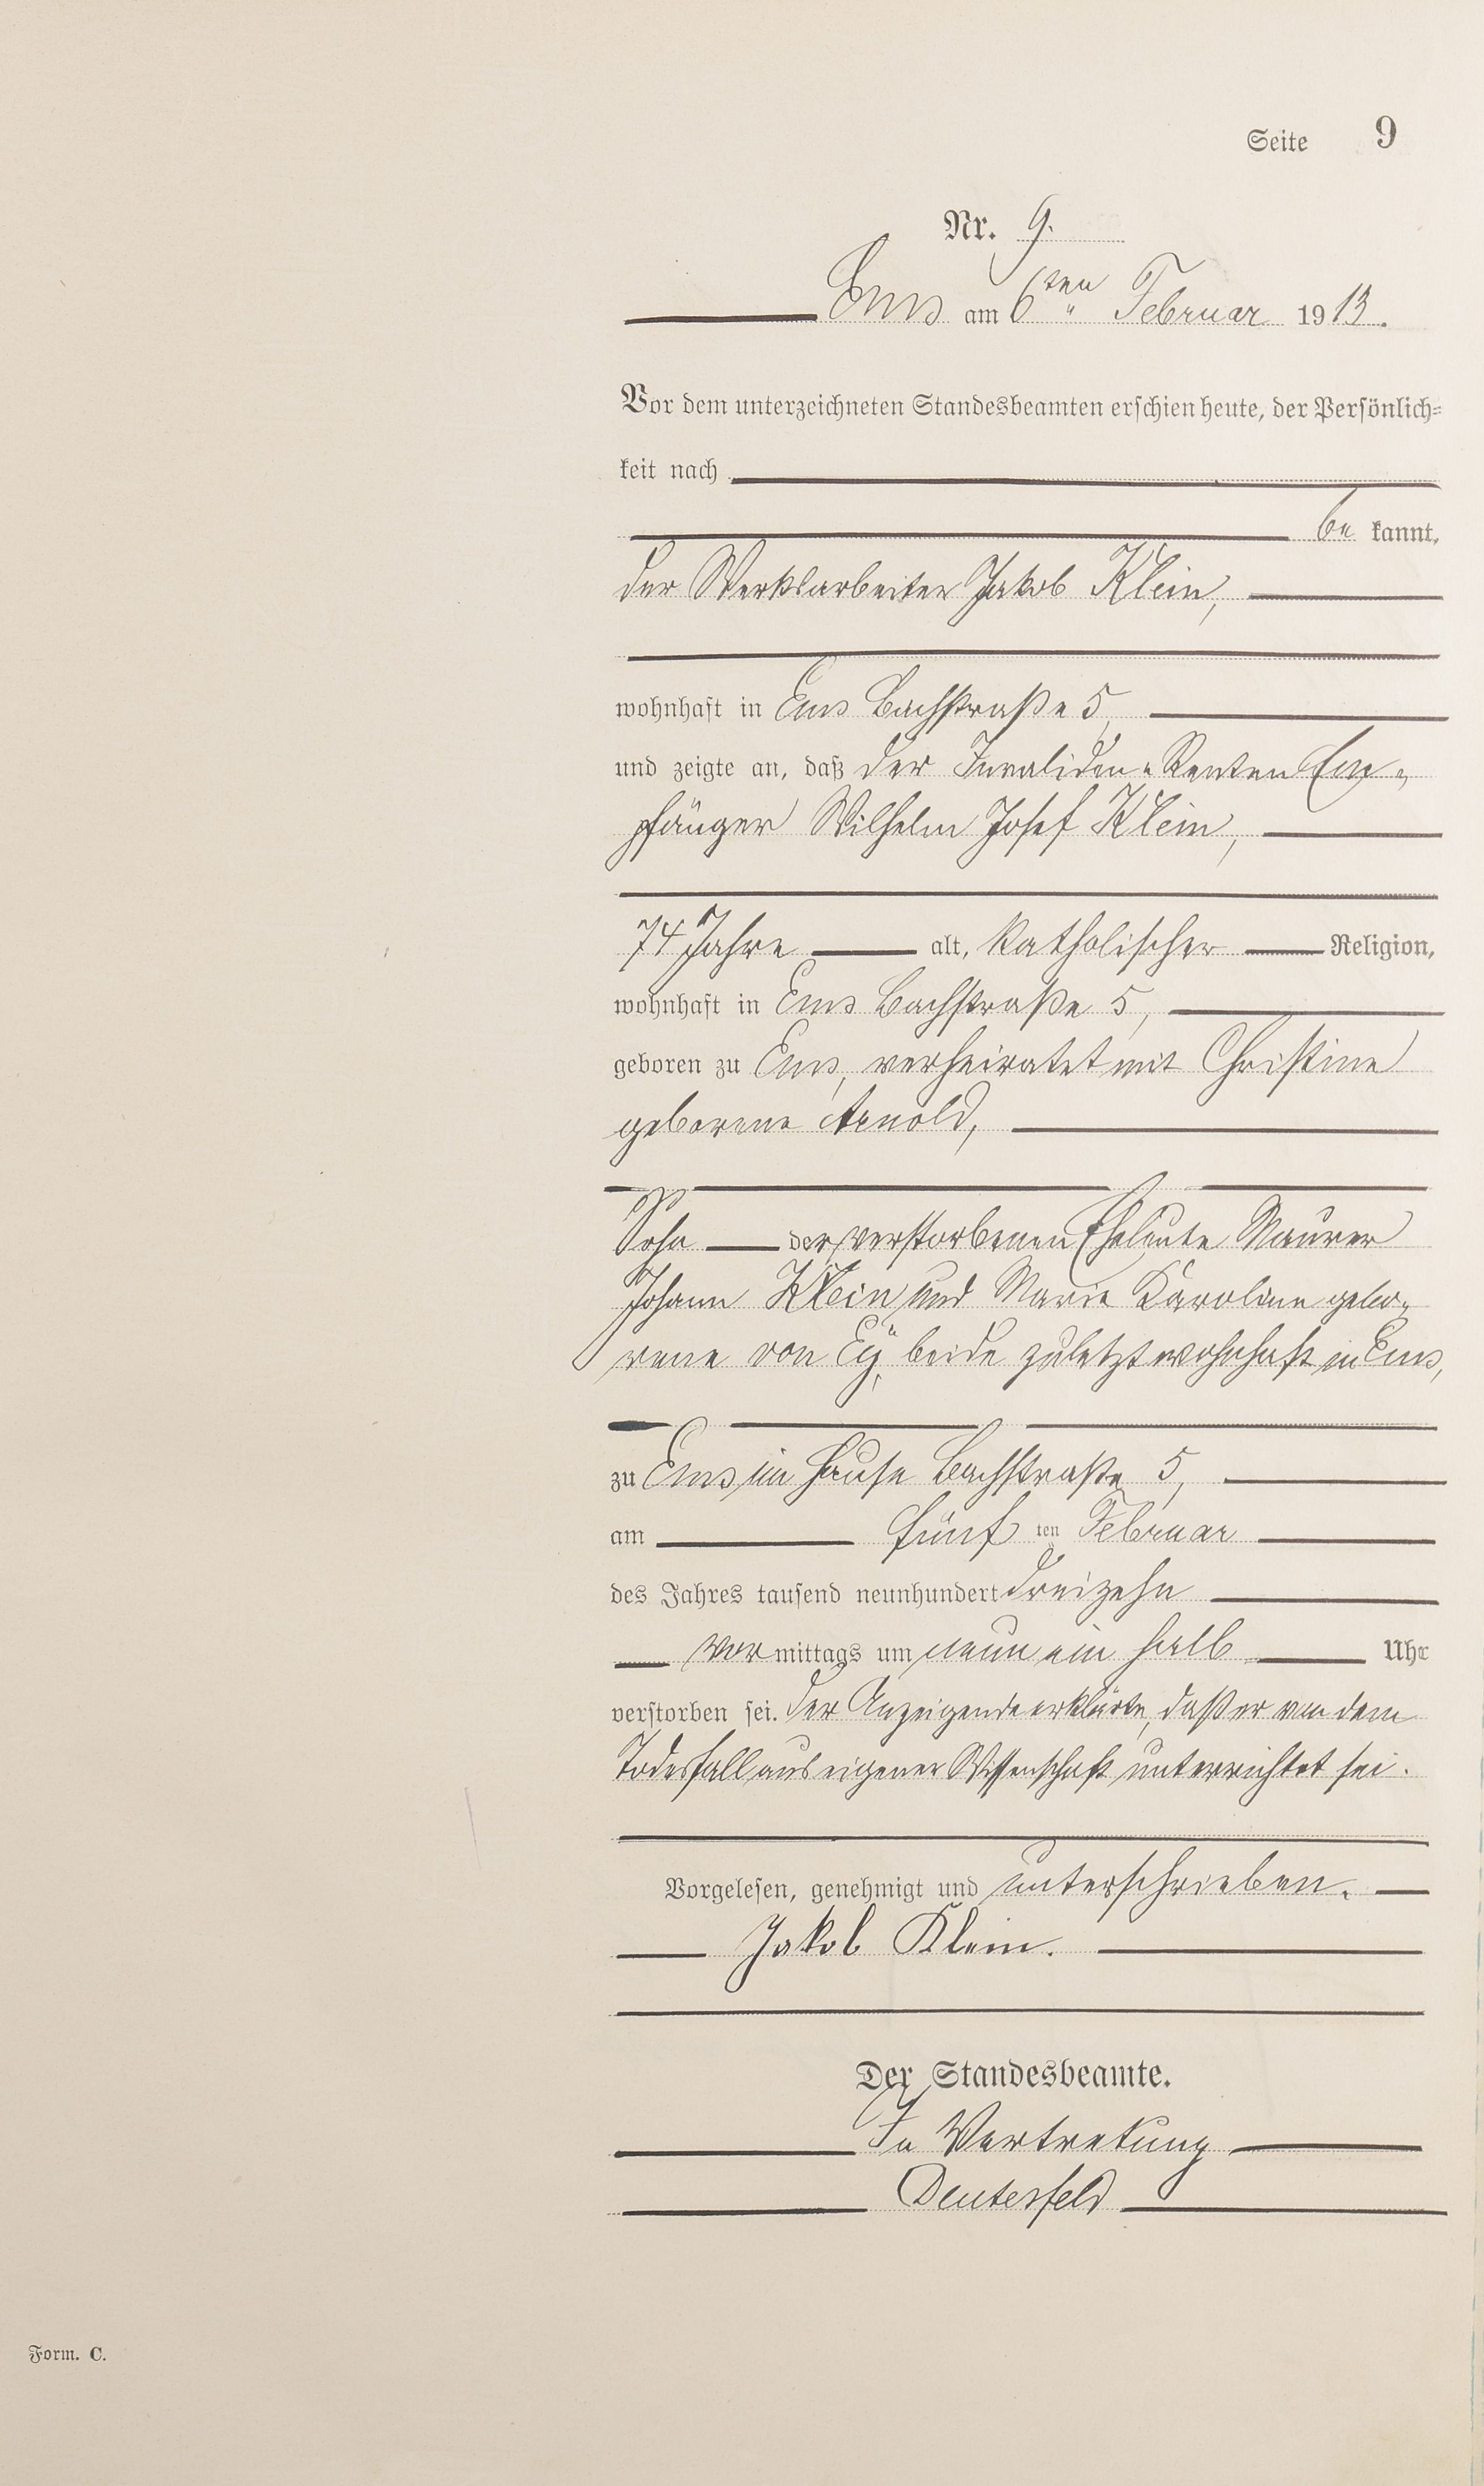 Seite 9
Nr. 9.
Ems am 6ten Februar 1913.
Vor dem unterzeichneten Standesbeamten erschien heute, der Persönlich=
keit nach
be kannt,
der Werksarbeiter Jakob Klein,
wohnhaft in Ems Bachstraße 5,
und zeigte an, daß der Invaliden-Renten Em-
pfänger Wilhelm Josef Klein,
74 Jahre alt, katholischer Religion,
wohnhaft in Ems Bachstraße 5,
geboren zu Ems, verheiratet mit Christine
geborene Arnold,
Sohn der verstorbenen Eheleute Maurer
Johann Klein und Marie Karoline gebo-
rene von Eÿ, beide zuletzt wohnhaft in Ems,
zu Ems im Hause Bachstraße 5,
am fünf ten Februar
des Jahres tausend neunhundert dreizehn
vor mittags um neun ein halb Uhr
verstorben sei. Der Anzeigende erklärte, daß er von dem
Todesfall aus eigener Wissenschaft unterrichtet sei.
Vorgelesen, genehmigt und unterschrieben.
Jakob Klein.
Der Standesbeamte.
In Vertretung
Deutesfeld
Form. C.